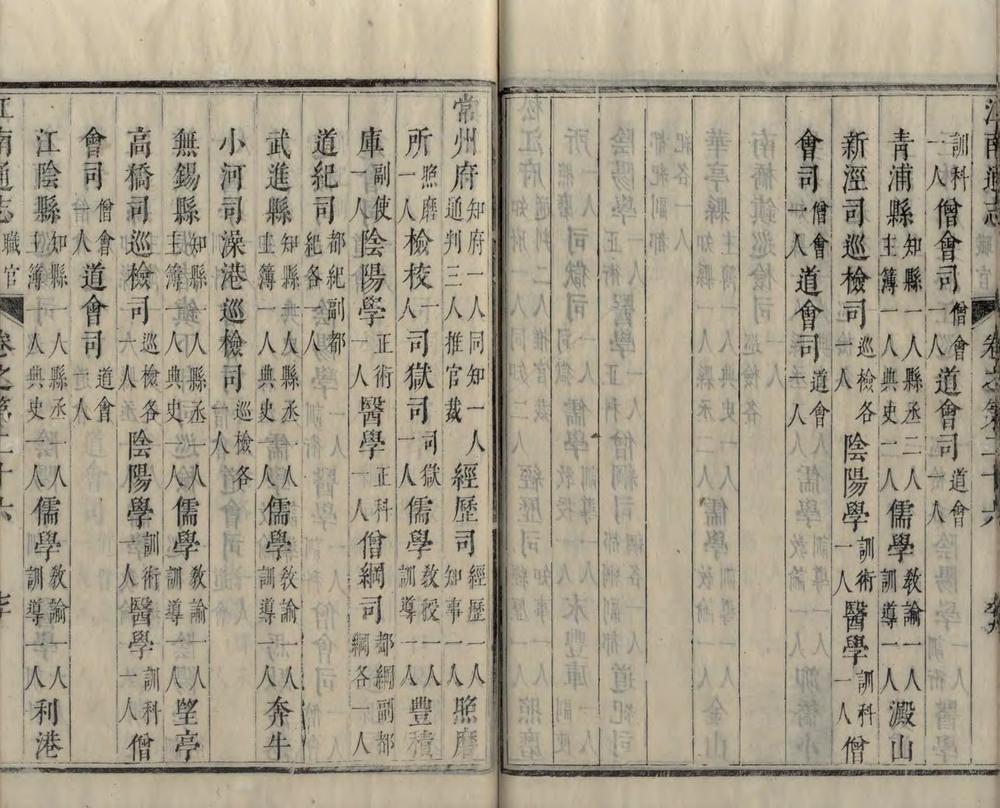 訓科一人僧會司僧會一人道會司道會一人
青浦縣知縣一人縣丞二人主簿一人典史一人儒學教諭一人訓導一人澱山
新涇司巡檢司巡檢各一人陰陽學訓術一人醫學訓科一人僧
會司僧會一人道會司道會一人
常州府知府一人同知一人通判三人推官裁經歷司經歷一人知事一人照磨
所照磨一人檢校一人司獄司司獄一人儒學教授一人訓導一人豐積
庫副使一人陰陽學正術一人醫學正科一人僧綱司都綱副都綱各一人
道紀司都紀副都紀各一人
武進縣知縣一人縣丞一人主簿一人典史一人儒學教諭一人訓導一人奔牛
小河司澡港巡檢司巡檢各一人
無錫縣知縣一人縣丞一人主簿一人典史一人儒學教諭一人訓導一人望亭
高橋司巡檢司巡檢各一人陰陽學訓術一人醫學訓科一人僧
會司僧會一人道會司道會一人
江陰縣知縣一人縣丞一人主簿一人典史一人儒學教諭一人訓導一人利港
江南通志 職官 卷之第二十六